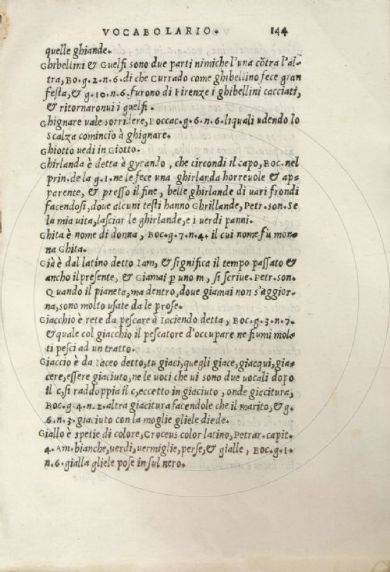 VOCABOLARIO. 144
quelle ghiande.
Ghibellini & Guelfi sono due parti nimiche l'una cōtra l'al-
tra, BO. g. 2. n. 6. di che Currado come ghibellino fece gran
festa, & g. 10. n. 6. furono di Firenze i ghibellini cacciati,
& ritornaronui i guelfi.
Ghignare vale sorridere, Boccac. g. 6. n. 6. liquali udendo lo
Scalza comincio à ghignare.
Ghiotto uedi in Giotto.
Ghirlanda è detta à gyrando, che circondi il capo, BOC. nel
prin. de la g. 1. ne le fece una ghirlanda horreuole & ap-
parente, & presso il fine, belle ghirlande di uari frondi
facendosi, doue alcuni testi hanno Ghrillande, Petr. son. Se
la mia uita, lasciar le ghirlande, e i uerdi panni.
Ghita è nome di donna, BOC. g. 7. n. 4. il cui nome fu mon-
na Ghita.
Già è dal latino detto Iam, & significa il tempo passato &
ancho il presente, & Giamai p uno m, si scriue. Petr. son.
Quando il pianeta, ma dentro, doue giamai non s'aggior-
na, sono molto usate da le prose.
Giacchio è rete da pescare à Iaciendo detta, BOC. g. 3. n. 7.
& quale col giacchio il pescatore d'occupare ne fiumi mol-
ti pesci ad un tratto.
Giaccio è da Iaceo detto, tu giaci, quegli giace, giacequi, gia-
cere, essere giaciuto, ne le uoci che ui sono due uocali dopo
il c, si raddoppia il c, eccetto in giaciuto, onde giacitura,
BOC. g. 4. n. 2. altra giacitura facendole che il marito, & g.
6. n. 3. giaciuto con la moglie gliele diede.
Giallo è spetie di colore, Croceus color latino, Petrar. capit.
4. AM. bianche, uerdi, vermiglie, perse, & gialle, BOC. g. 1.
n. 6. gialla gliele pose in sul nero.